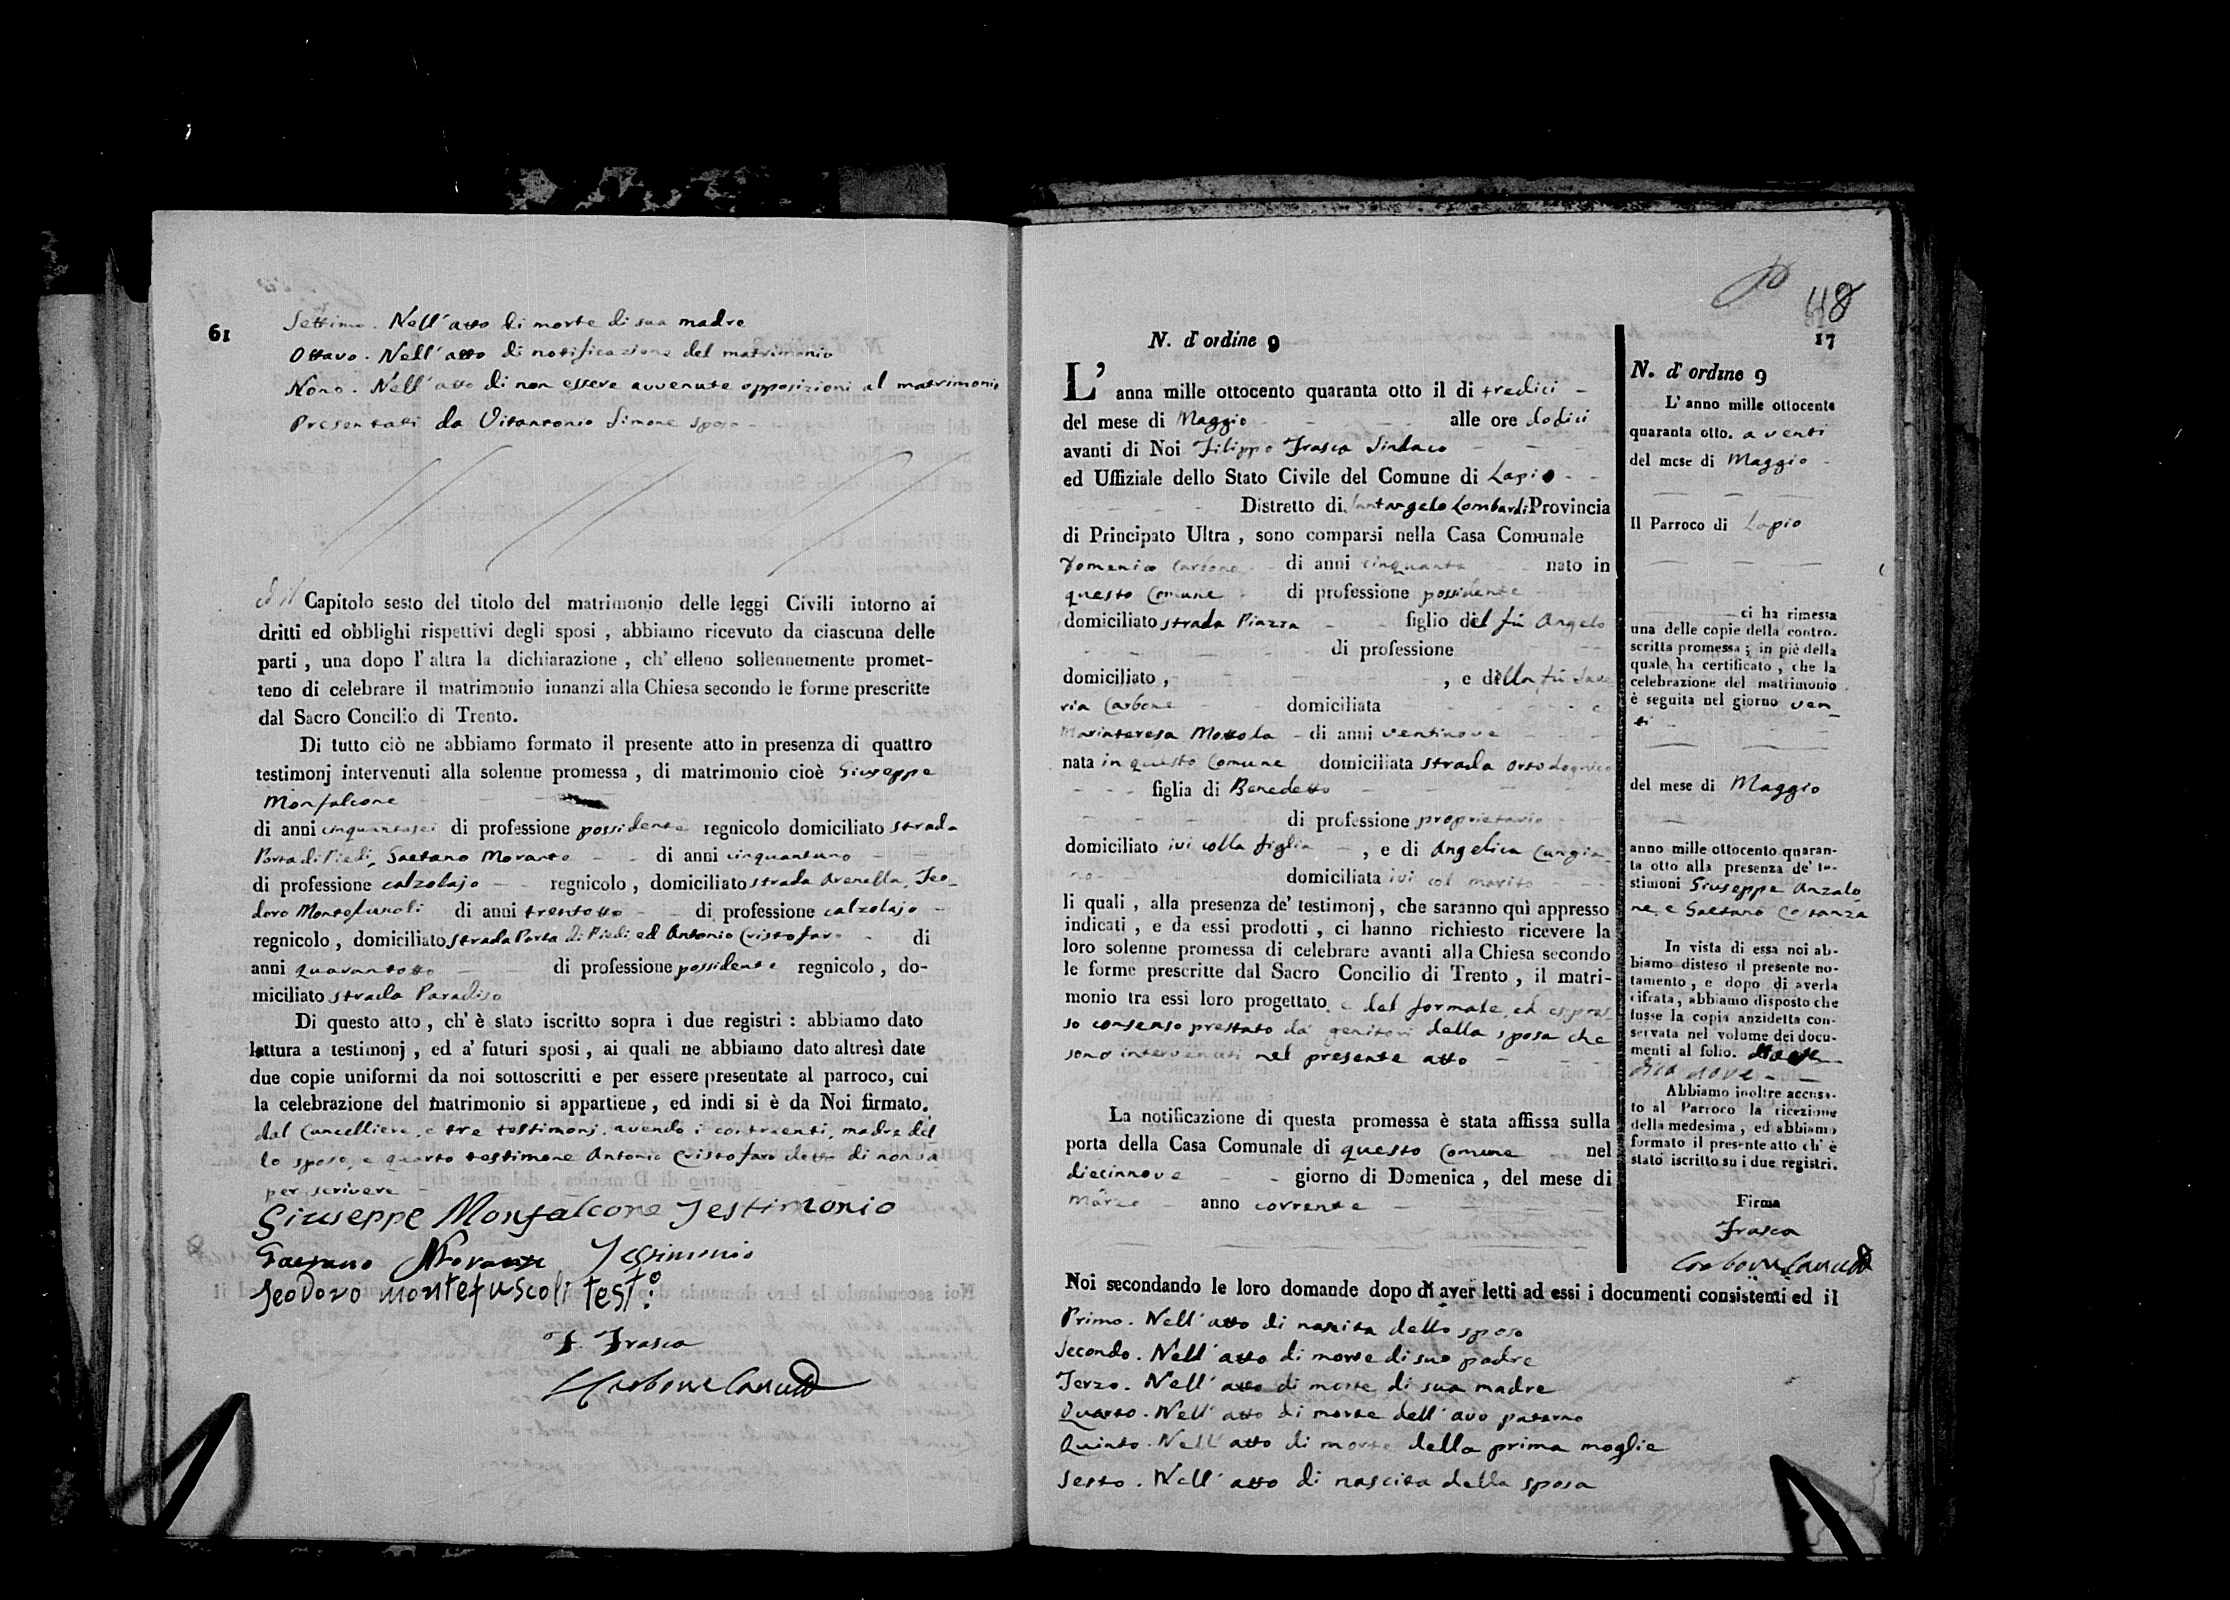 61
Settimo. Nell'atto di morte di sua madre
Ottavo. Nell'atto di notificazione del matrimonio
Nono. Nell'atto di non essere avvenute opposizioni al matrimonio
Presentati da Vitantonio Simone sposo
ed il Capitolo sesto del titolo del matrimonio delle leggi Civili intorno ai
dritti ed obblighi rispettivi degli sposi , abbiamo ricevuto da ciascuna delle
parti , una dopo l'altra la dichiarazione , ch'elleno sollennemente promet-
teno di celebrare il matrimonio innanzi alla Chiesa secondo le forme prescritte
dal Sacro Concilio di Trento.
Di tutto ciò ne abbiamo formato il presente atto in presenza di quattro
testimonj intervenuti alla solenne promessa , di matrimonio cioè Giuseppe
Monfalcone
di anni cinquantasei di professione possidente regnicolo domiciliato strada
Porta di Piedi, Gaetano Morante di anni cinquantuno
di professione calzolajo regnicolo , domiciliato strada Arenella, Teo-
doro Montefuscoli di anni trentotto di professione calzolajo
regnicolo , domiciliato strada Porta di Piedi ed Antonio Cristofaro di
anni quarantotto di professione possidente regnicolo , do-
miciliato strada Paradiso
Di questo atto , ch'è stato iscritto sopra i due registri : abbiamo dato
lettura a testimonj , ed a' futuri sposi , ai quali ne abbiamo dato altresì date
due copie uniformi da noi sottoscritti e per essere presentate al parroco, cui
la celebrazione del matrimonio si appartiene , ed indi si è da Noi firmato,
dal Cancelliere, e tre testimonj, avendo i contraenti, madre del
lo sposo, e quarto testimone Antonio Cristofaro detto di non sa
per scrivere
Giuseppe Monfalcone Testimonio
Gaetano Morante Testimonio
Teodoro montefuscoli test:o
F. Frasca
Carbone Canc
48
17
N. d'ordine 9
L' anna mille ottocento quaranta otto il di tredici
del mese di Maggio alle ore dodici
avanti di Noi Filippo Frasca Sindaco
ed Uffiziale dello Stato Civile del Comune di Lapio
Distretto di Santangelo Lombardi Provincia
di Principato Ultra , sono comparsi nella Casa Comunale
Domenico Carbone di anni cinquanta nato in
questo Comune di professione possidente
domiciliato strada Piazza figlio del fu Angelo
di professione
domiciliato , , e della fu Save
ria Carbone domiciliata e
Mariateresa Mottola di anni ventinove
nata in questo Comune domiciliata strada Orto
figlia di Benedetto
di professione proprietario
domiciliato ivi colla figlia , e di Angelica Cungia
no domiciliata ivi col marito
li quali , alla presenza de' testimonj , che saranno quì appresso
indicati , e da essi prodotti , ci hanno richiesto ricevere la
loro solenne promessa di celebrare avanti alla Chiesa secondo
le forme prescritte dal Sacro Concilio di Trento , il matri-
monio tra essi loro progettato, e dal formale, ed espres-
so consenso prestato da' genitori della sposa che
sono intervenuti nel presente atto
La notificazione di questa promessa è stata affissa sulla
porta della Casa Comunale di questo Comune nel
diecinnove giorno di Domenica , del mese di
Marzo anno corrente
Noi secondando le loro domande dopo di aver letti ad essi i documenti consistenti ed il
Primo. Nell'atto di nascita dello sposo
Secondo. Nell'atto di morte di suo padre
Terzo. Nell'atto di morte di sua madre
Quarto. Nell'atto di morte dell'avo paterno
Quinto. Nell'atto di morte della prima moglie
Sesto. Nell'atto di nascita della sposa
N. d'ordine 9
L' anno mille ottocento
quaranta otto. a venti
del mese di Maggio
Il Parroco di Lapio
ci ha rimessa
una delle copie della contro-
scritta promessa ; in piè della
quale ha certificato , che la
celebrazione del matrimonio
è seguita nel giorno ven-
ti
del mese di Maggio
anno mille ottocento quaran-
ta otto alla presenza de' te-
stimoni Giuseppe Anzalo
ne, e Gaetano Costanza
In vista di essa noi ab-
biamo disteso il presente no-
tamento , e dopo di averla
cifrata , abbiamo disposto che
fusse la copia anzidetta con-
servata nel volume dei docu-
menti al folio.
Abbiamo inoltre accusa-
to al Parroco la ricezione
della medesima , ed abbiamo
formato il presente atto ch'è
stato iscritto su i due registri.
Firma
Frasca
Carbone Canc